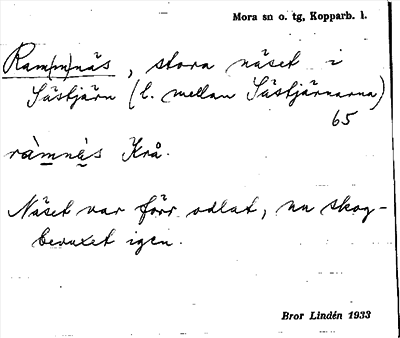 Mora sn o. tg, Kopparb. l.
Ram(m)näs, stora näset i
Sästjärn (l. mellan Sästjärnarna)
65
ràmnäs Krå.
Näset var förr odlat, nu skog-
bevuxet igen.
Bror Lindén 1933